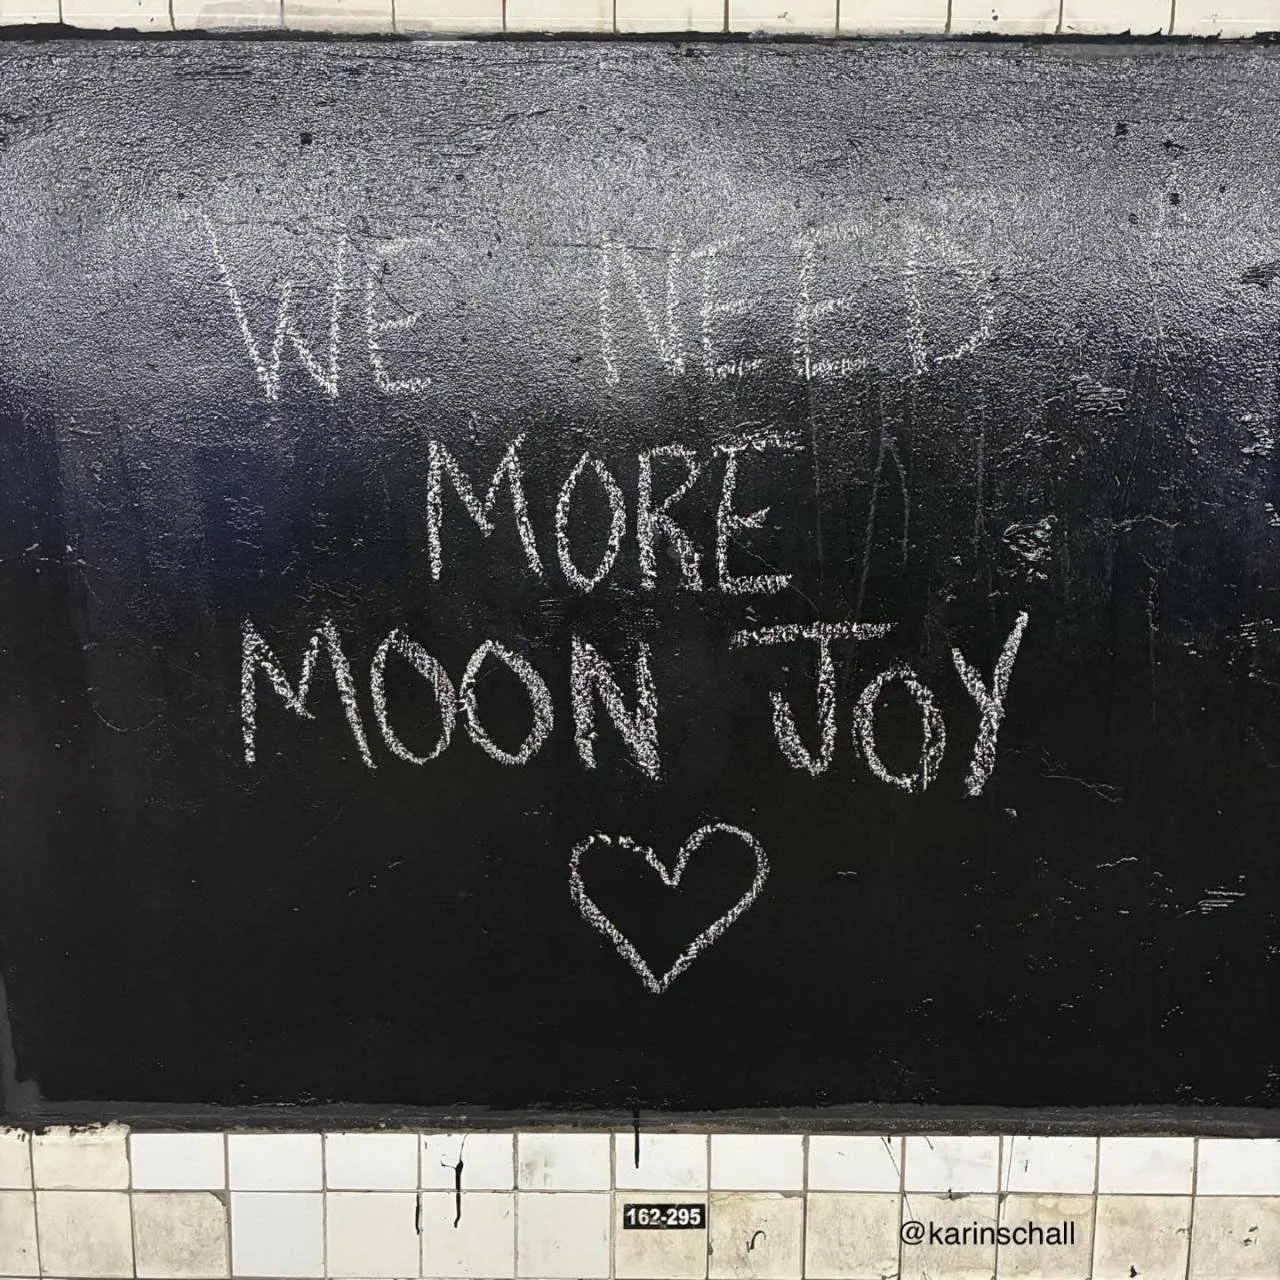 WE NEED
MORE
MOON JOY
162-295
@karinschall